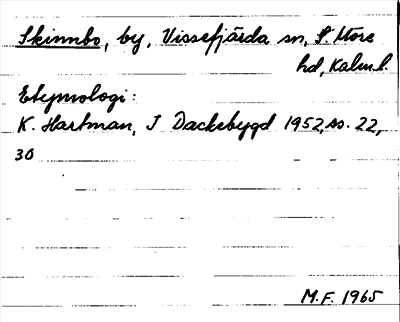 Skinnbo, by, Vissefjärda sn, S. Möre
hd, Kalm.l.
Etymologi:
K. Hartman, I Dackebygd 1952, ss. 22,
30
M.F. 1965